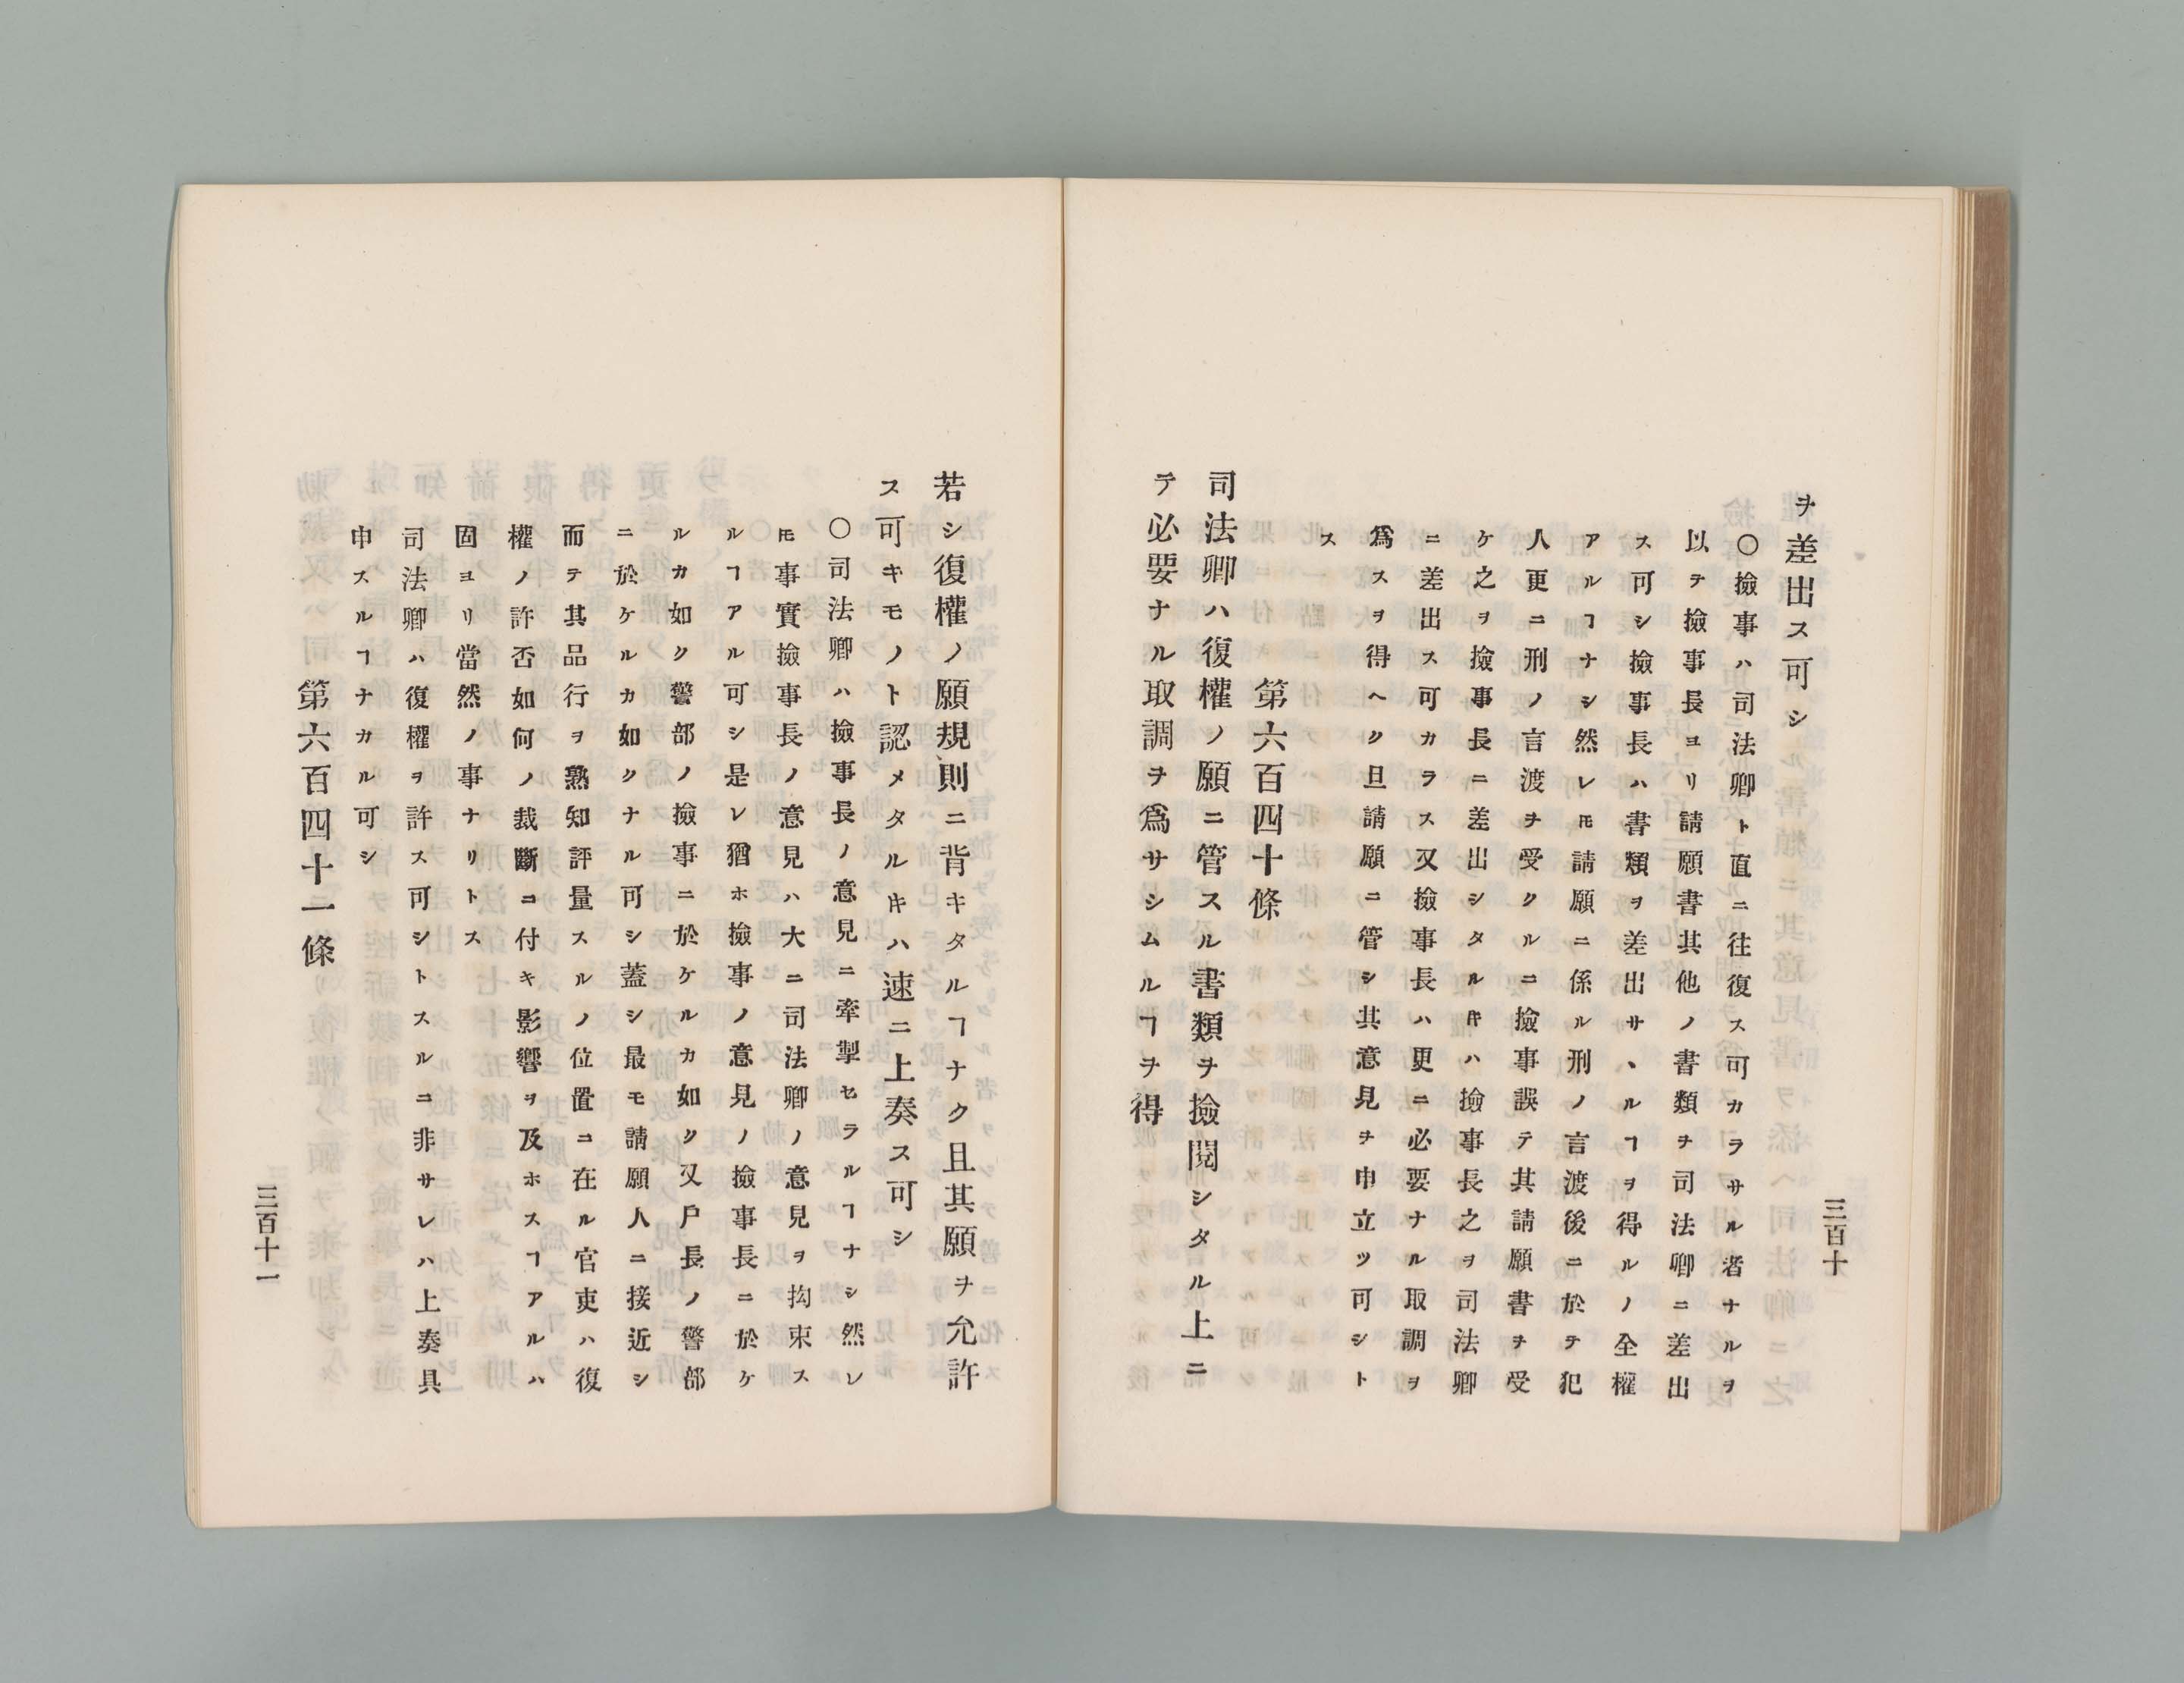 ヲ差出ス可シ
〇撿事ハ司法卿ト直ニ往復ス可カラサル者ナルヲ
以テ撿事長ヨリ請願書其他ノ書類ヲ司法卿ニ差出
ス可シ撿事長ハ書類ヲ差出サヽルヿヲ得ルノ全權
アルヿナシ然レ𪜈請願ニ係ル刑ノ言渡後ニ於テ犯
人更ニ刑ノ言渡ヲ受クルニ撿事誤テ其請願書ヲ受
ケ之ヲ撿事長ニ差出シタル𪜈ハ撿事長之ヲ司法卿
ニ差出ス可カラス又撿事長ハ更ニ必要ナル取調ヲ
爲スヲ得ヘク且請願ニ管シ其意見ヲ申立ツ可シト
ス
第六百四十條
司法卿ハ復權ノ願ニ管スル書類ヲ撿閱シタル上ニ
テ必要ナル取調ヲ爲サシムルヿヲ得
三百十
若シ復權ノ願規則ニ背キタルヿナク且其願ヲ允許
ス可キモノト認メタル𪜈ハ速ニ上奏ス可シ
〇司法卿ハ撿事長ノ意見ニ牽掣セラルヿナシ然レ
𪜈事實撿事長ノ意見ハ大ニ司法卿ノ意見ヲ拘束ス
ルヿアル可シ是レ猶ホ撿事ノ意見ノ撿事長ニ於ケ
ルカ如ク警部ノ撿事ニ於ケルカ如ク又戶長ノ警部
ニ於ケルカ如クナル可シ蓋シ最モ請願人ニ接近シ
而テ其品行ヲ熟知評量スルノ位置ニ在ル官吏ハ復
權ノ許否如何ノ裁斷ニ付キ影響ヲ及ホスヿアルハ
固ヨリ當然ノ事ナリトス
司法卿ハ復權ヲ許ス可シトスルニ非サレハ上奏具
申スルヿナカル可シ
第六百四十一條
三百十一